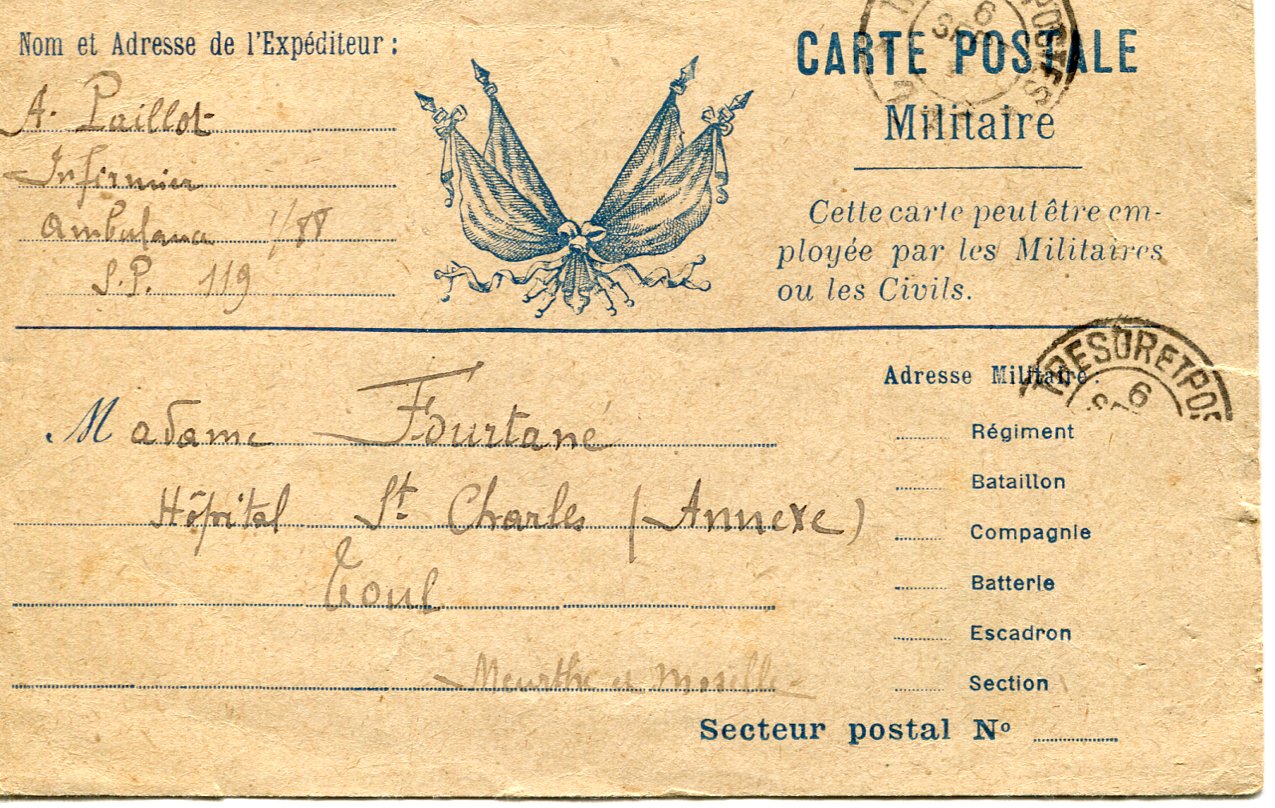 Nom et Adresse de l'Expéditeur :
A. Paillot
Infirmier
Ambulance 1/88
S.P. 119
6
CARTE POSTALE
Militaire
Cette carte peut être em-
ployée par les Militaires
ou les Civils.
TRESOR ET POS
6
Adresse Militaire :
Madame Fourtané
Hôpital St Charles (Annexe)
Toul
Meurthe et Moselle
Régiment
Bataillon
Compagnie
Batterie
Escadron
Section
Secteur postal Nº